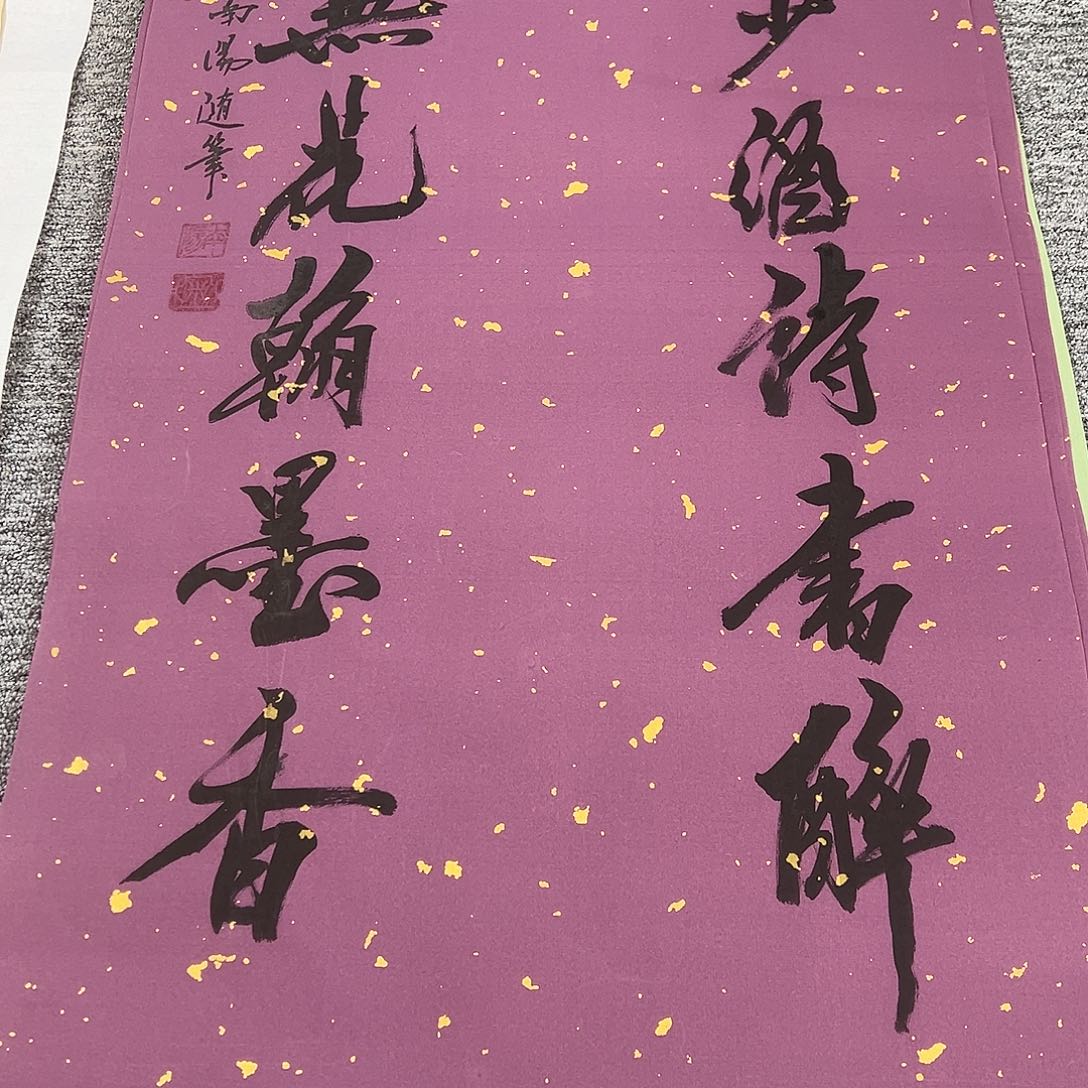 少酒詩書醉
無花翰墨香
南陽随筆